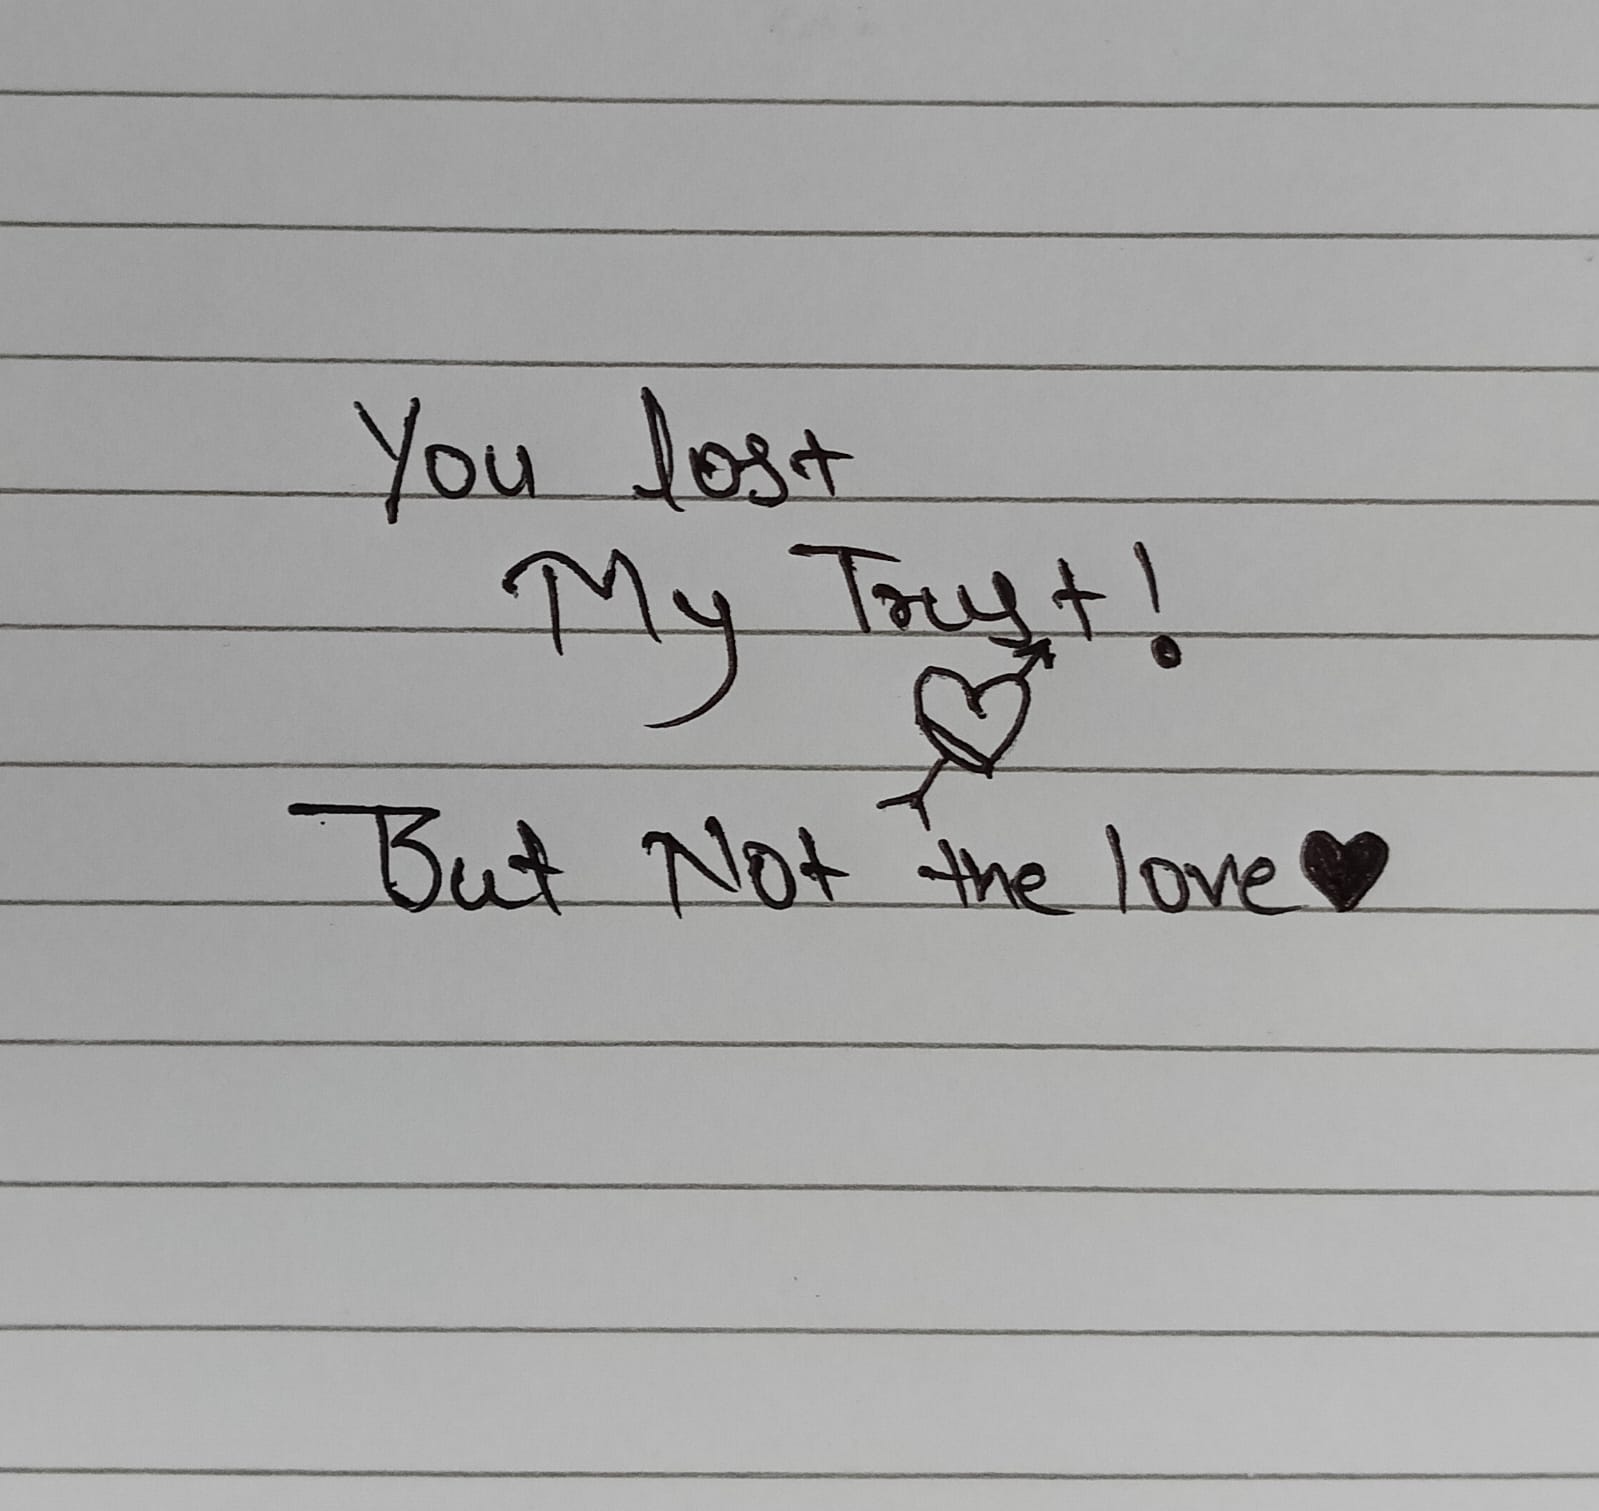 You lost
My Trust!
But Not the love♥